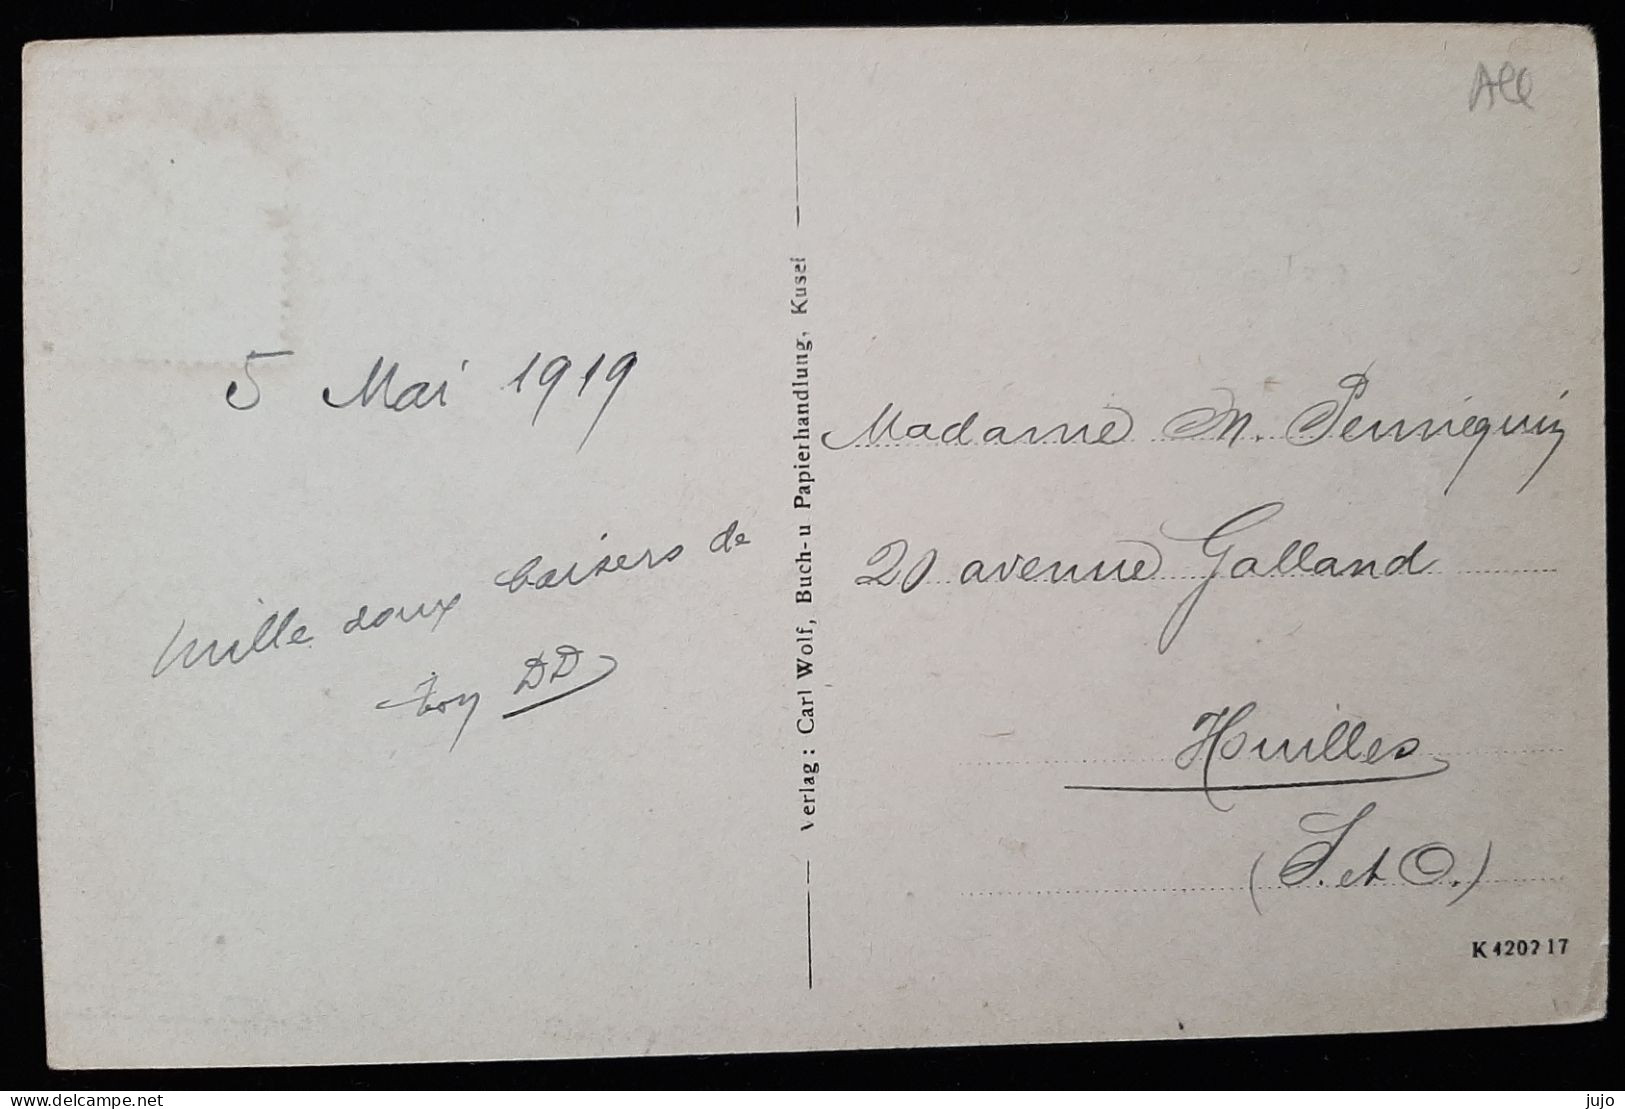 All
5 Mai 1919
Mille doux baisers de
ton DD
Verlag: Carl Wolf, Buch- u Papierhandlung, Kusel
Madame M. Pennequin
20 avenue Galland
Houilles
(S. et O.)
K 4202 17
delcampe.net
jujo